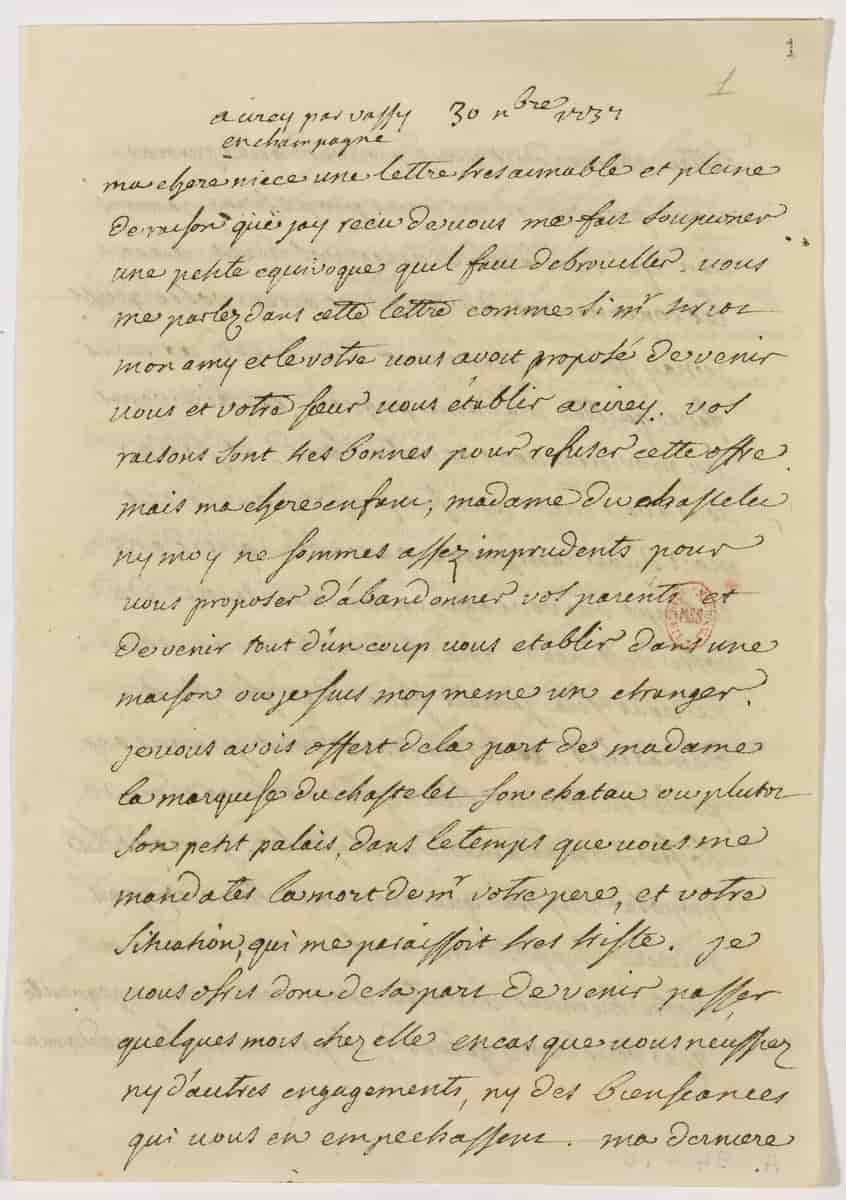 1
1
a cirey par vassy 30 nbre 1737
en champagne
ma chere niece une lettre tres aimable et pleine
de raison que jay recue de vous me fait soupconer
une petite equivoque quil faut debrouiller. vous
me parlez dans cette lettre comme si mr tiriot
mon amy et le votre vous avoit proposé de venir
vous et votre soeur vous établir a cirey. vos
raisons sont tres bonnes pour refuser cette offre.
mais ma chere enfant, madame du chastelet
ny moy ne sommes assez imprudents pour
vous proposer d'abandonner vos parents et
de venir tout d'un coup vous etablir dans une
maison ou je suis moy meme un etranger.
je vous avois offert de la part de madame
la marquise du chastelet son chatau ou plutot
son petit palais, dans le temps que vous me
mandates la mort de mr votre pere, et votre
situation, qui me paraissoit tres triste. je
vous ofris donc de sa part de venir passer
quelques mois chez elle en cas que vous neussiez
ny d'autres engagements, ny des bienseances
qui vous en empechassent. ma derniere